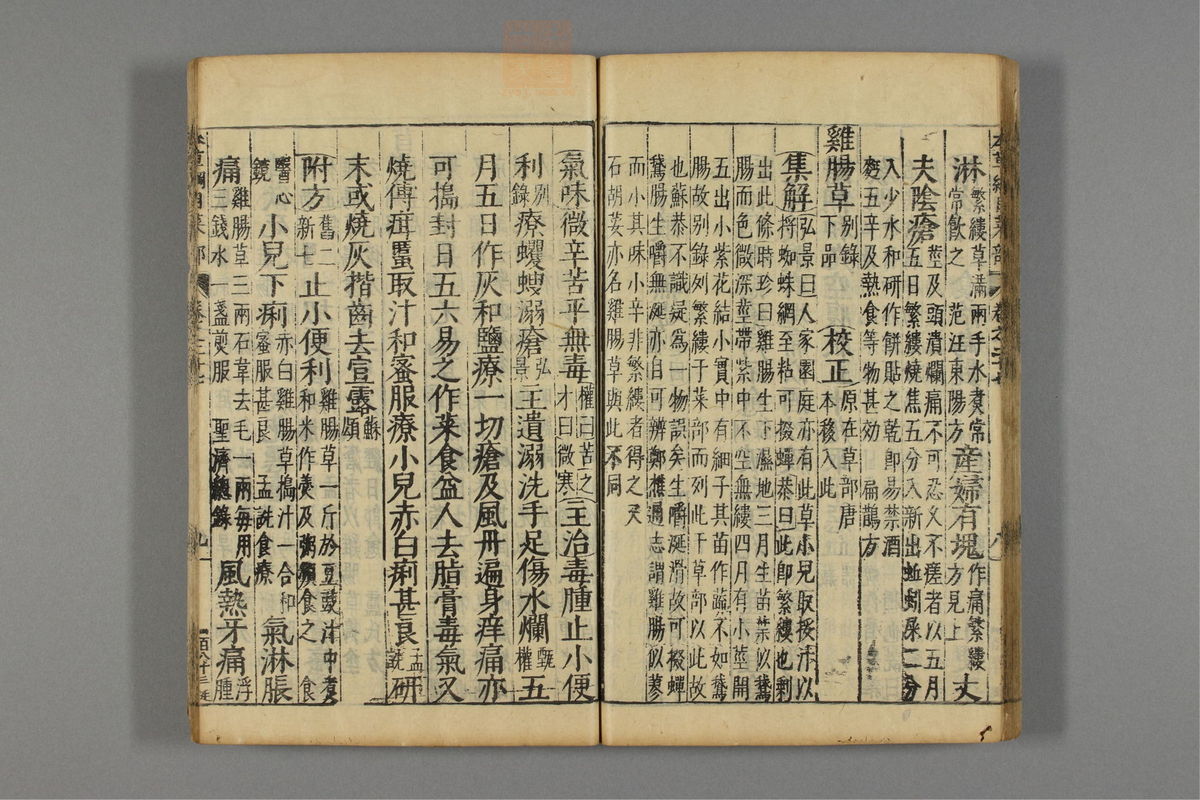 淋繁縷草滿兩手水煮常
常飲之　范汪東陽方産婦有塊作痛繁縷
方見上丈
夫陰瘡莖及頭潰爛痛不可忍久不瘥者以五月
五日繁縷燒焦五分入新出蚯蚓屎二分
入少水和研作餅貼之乾即易禁酒
麪五辛及熱食等物甚効　扁鵲方
雞腸草別錄
下品校正原在草部唐
本移入此
集解弘景曰人家園庭亦有此草小兒取挼汁以
捋蜘蛛網至粘可掇蟬恭曰此即繁縷也剩
出此條時珍曰雞腸生下濕地三月生苗葉似鵞
腸而色微深莖帶紫中不空無縷四月有小莖開
五出小紫花結小實中有細子其苗作蔬不如鵞
腸故別錄列繁縷于菜部而列此于草部以此故
也蘇恭不識疑爲一物誤矣生嚼涎滑故可掇蟬
鵞腸生嚼無涎亦自可辨鄭樵通志謂雞腸似蓼
而小其味小辛非繁縷者得之又
石胡荽亦名雞腸草與此不同
氣味微辛苦平無毒權曰苦之
才曰微寒主治毒腫止小便
利別
錄療蠼螋溺瘡弘
景主遺溺洗手足傷水爛甄
權五
月五日作灰和鹽療一切瘡及風丹遍身痒痛亦
可搗封日五六易之作菜食益人去脂膏毒氣又
燒傅疳䘌取汁和蜜服療小兒赤白痢甚良孟
詵研
末或燒灰揩齒去宣露蘇
頌
附方舊二
新七止小便利雞腸草一斤於豆豉汁中煮
和米作羹及粥頻食之　食
醫心
鏡小兒下痢赤白雞腸草搗汁一合和
蜜服甚良　孟詵食療氣淋脹
痛雞腸草三兩石韋去毛一兩每用
三錢水一盞煎服　聖濟總錄風熱牙痛浮
腫